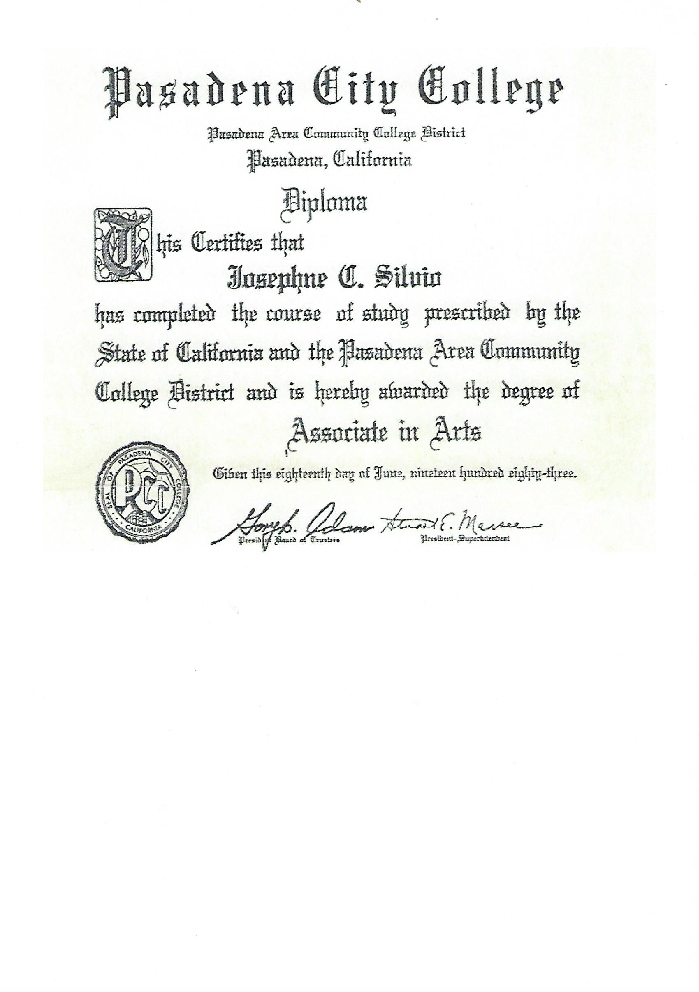 Pasadena City College
Pasadena Area Community College District
Pasadena, California
Diploma
This Certifies that
Josephne C. Silvio
has completed the course of study prescribed by the
State of California and the Pasadena Area Community
College District and is hereby awarded the degree of
Associate in Arts
Given this eighteenth day of June, nineteen hundred eighty-three.
SEAL OF PASADENA CITY COLLEGE
PCC
CALIFORNIA
President Board of Trustees
President-Superintendent